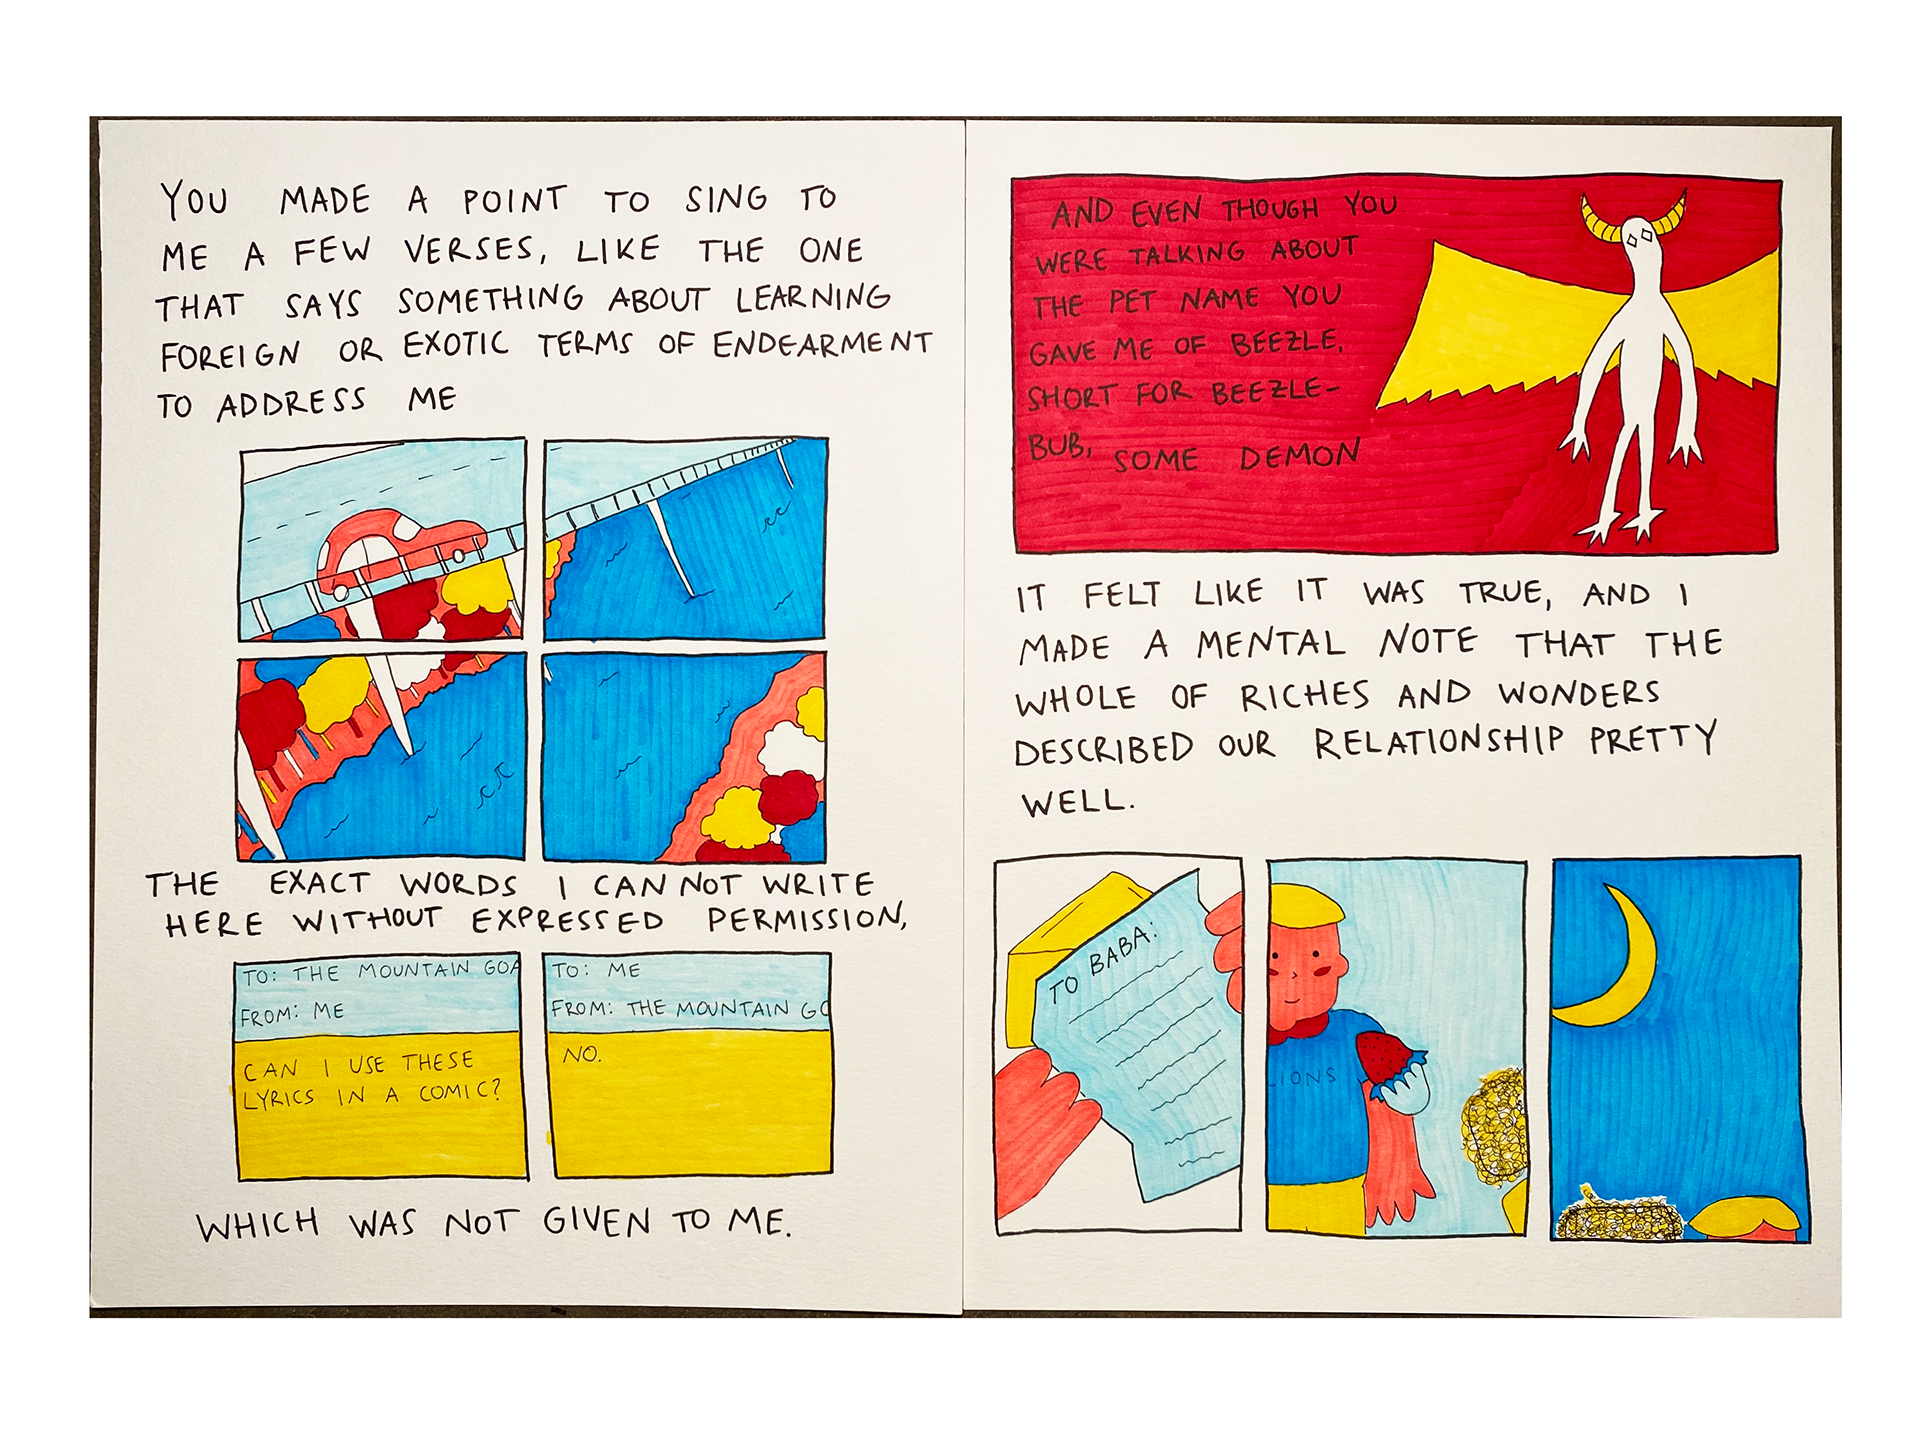 YOU MADE A POINT TO SING TO
ME A FEW VERSES, LIKE THE ONE
THAT SAYS SOMETHING ABOUT LEARNING
FOREIGN OR EXOTIC TERMS OF ENDEARMENT
TO ADDRESS ME
THE EXACT WORDS I CANNOT WRITE
HERE WITHOUT EXPRESSED PERMISSION,
TO: THE MOUNTAIN GOA
FROM: ME
CAN I USE THESE
LYRICS IN A COMIC?
TO: ME
FROM: THE MOUNTAIN GO
NO.
WHICH WAS NOT GIVEN TO ME.
AND EVEN THOUGH YOU
WERE TALKING ABOUT
THE PET NAME YOU
GAVE ME OF BEEZLE,
SHORT FOR BEEZLE-
BUB, SOME DEMON
IT FELT LIKE IT WAS TRUE, AND I
MADE A MENTAL NOTE THAT THE
WHOLE OF RICHES AND WONDERS
DESCRIBED OUR RELATIONSHIP PRETTY
WELL.
TO BABA:
LIONS